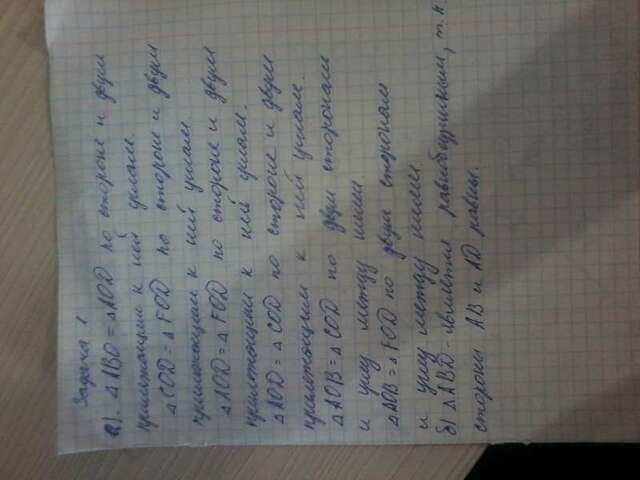 Задача 1
а). △ABO = △AOD по стороне и двум
прилежащим к ней углам.
△COD = △FOD по стороне и двум
прилежащим к ней углам.
△AOD = △FOD по стороне и двум
прилежащим к ней углам.
△AOD = △COD по стороне и двум
прилежащим к ней углам.
△AOB = △COD по двум сторонам
и углу между ними.
△AOB = △FOD по двум сторонам
и углу между ними.
б) △ABD - является равнобедринным, т.к
стороны AB и AD равны.